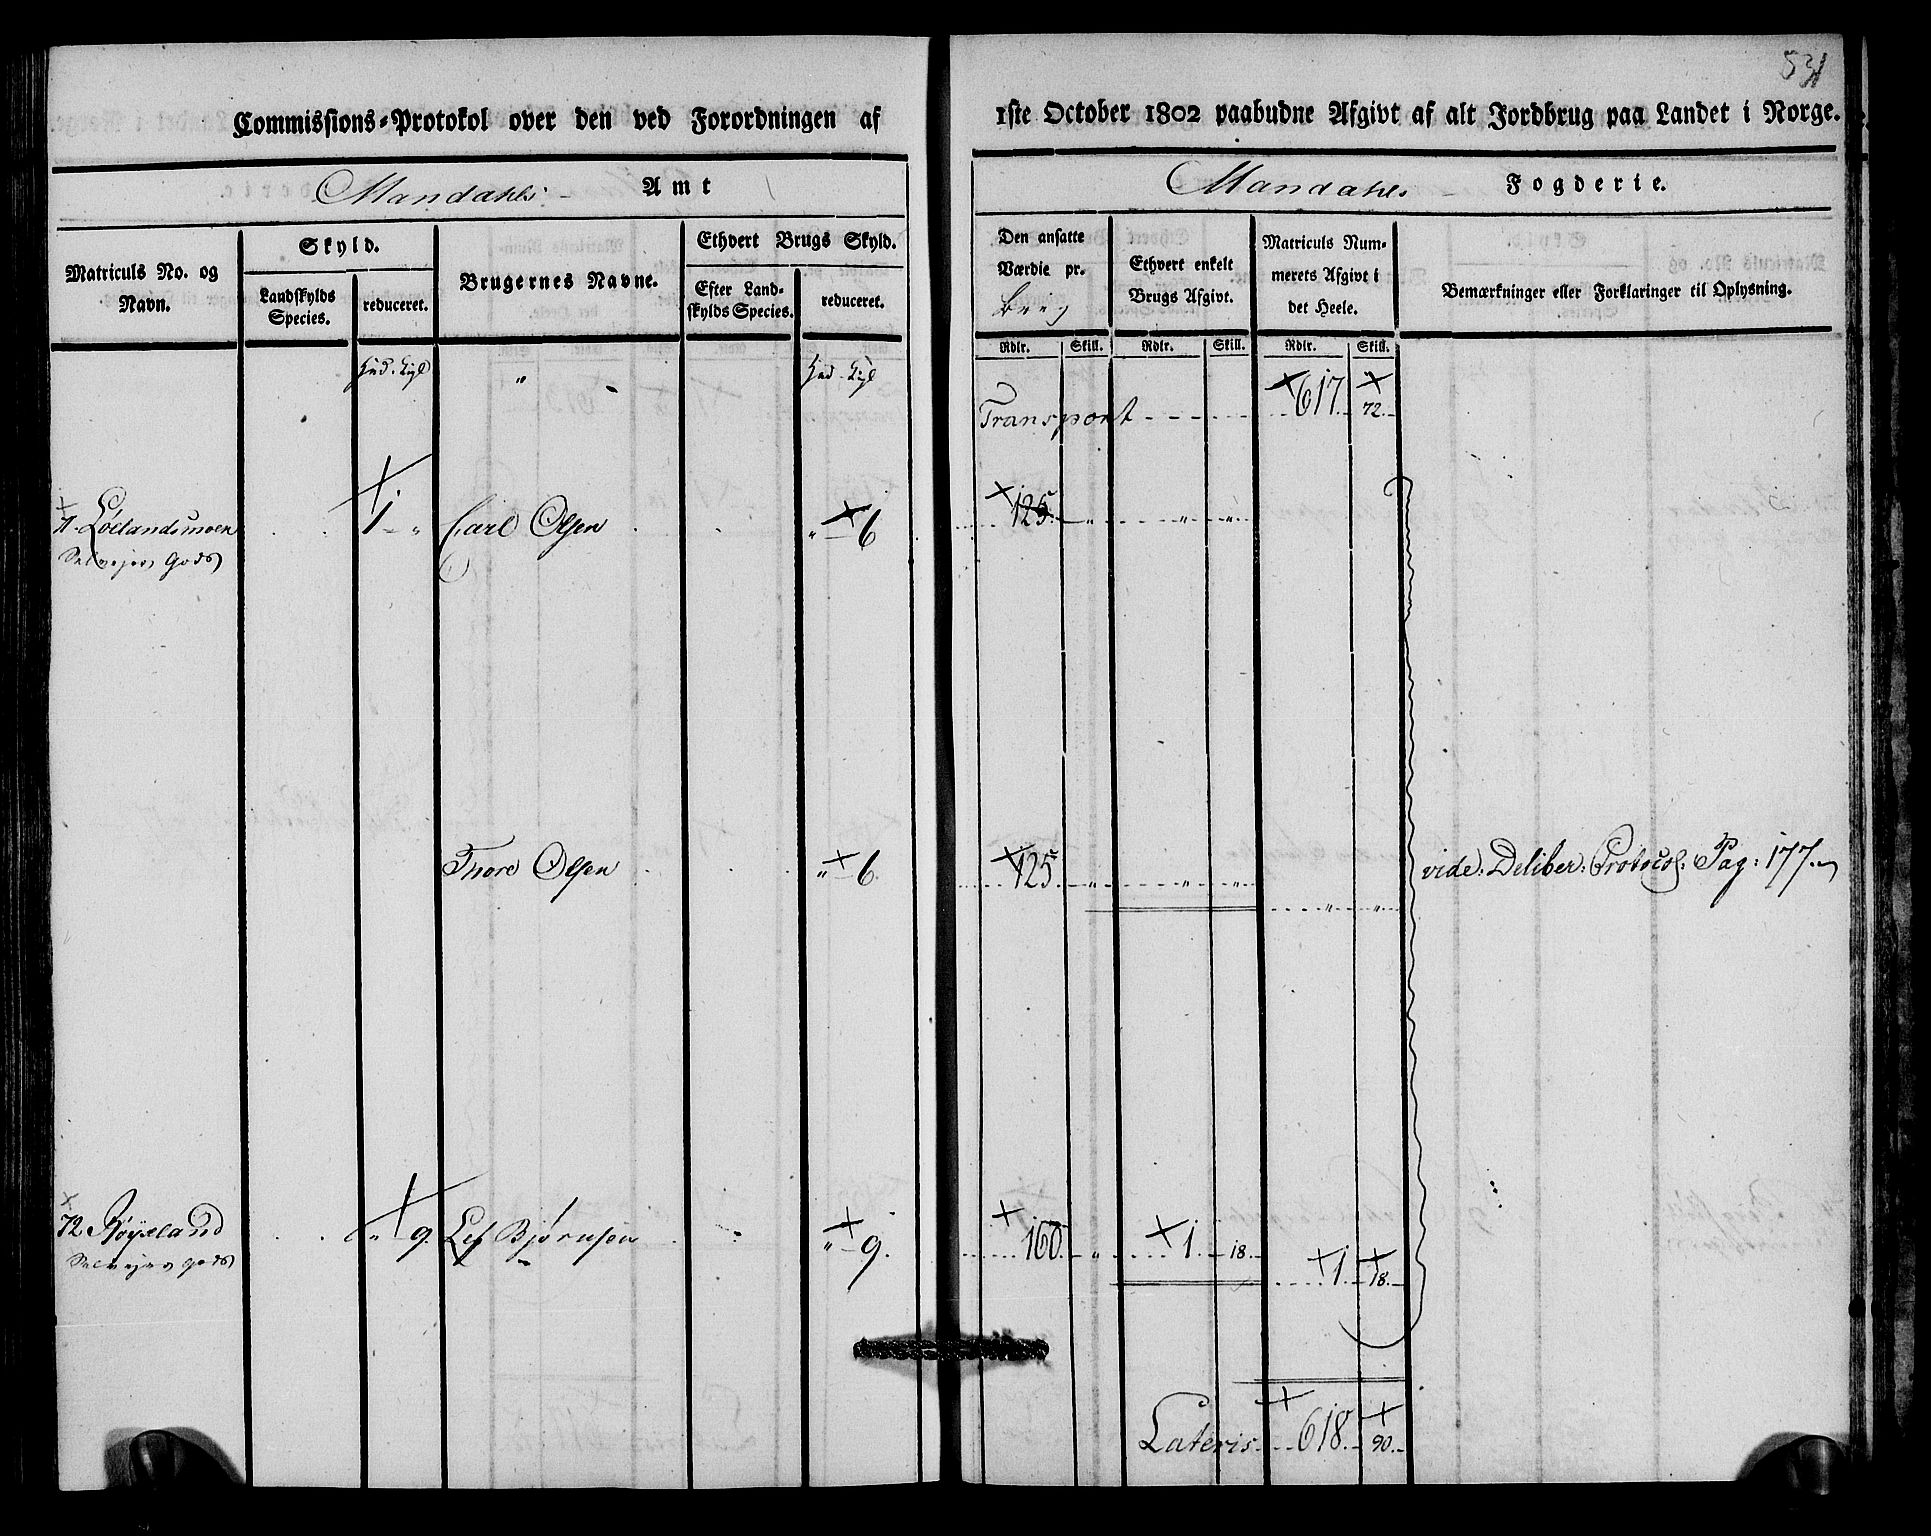 531
Commissions-Protokol over den ved Forordningen af 1ste October 1802 paabudne Afgivt af alt Jordbrug paa Landet i Norge.
Mandahls Amt
Mandahls Fogderie.
Matriculs No. og Navn.
Skyld.
Landskylds Species.
reduceret.
Brugernes Navne.
Ethvert Brugs Skyld.
Efter Landskylds Species.
reduceret.
Den ansatte Værdie pr. Brug
Ethvert enkelt Brugs Afgivt.
Matriculs Nummerets Afgivt i det Heele.
Bemærkninger eller Forklaringer til Oplysning.
Rdlr. Skill. Rdlr. Skill. Rdlr. Skill.
Transport 617 72
71 Løelandsmoen 1 " Carl Olsen " 6 125 " " "
Selvejer Gods
Thore Olsen " 6 125 " " "
" "
vide Deliber: Protocol: Pag: 177
72 Røyseland " 9 Lef Bjørnsen " 9 160 " 1 18
Selvejer Gods
1 18
Lateris 618 90